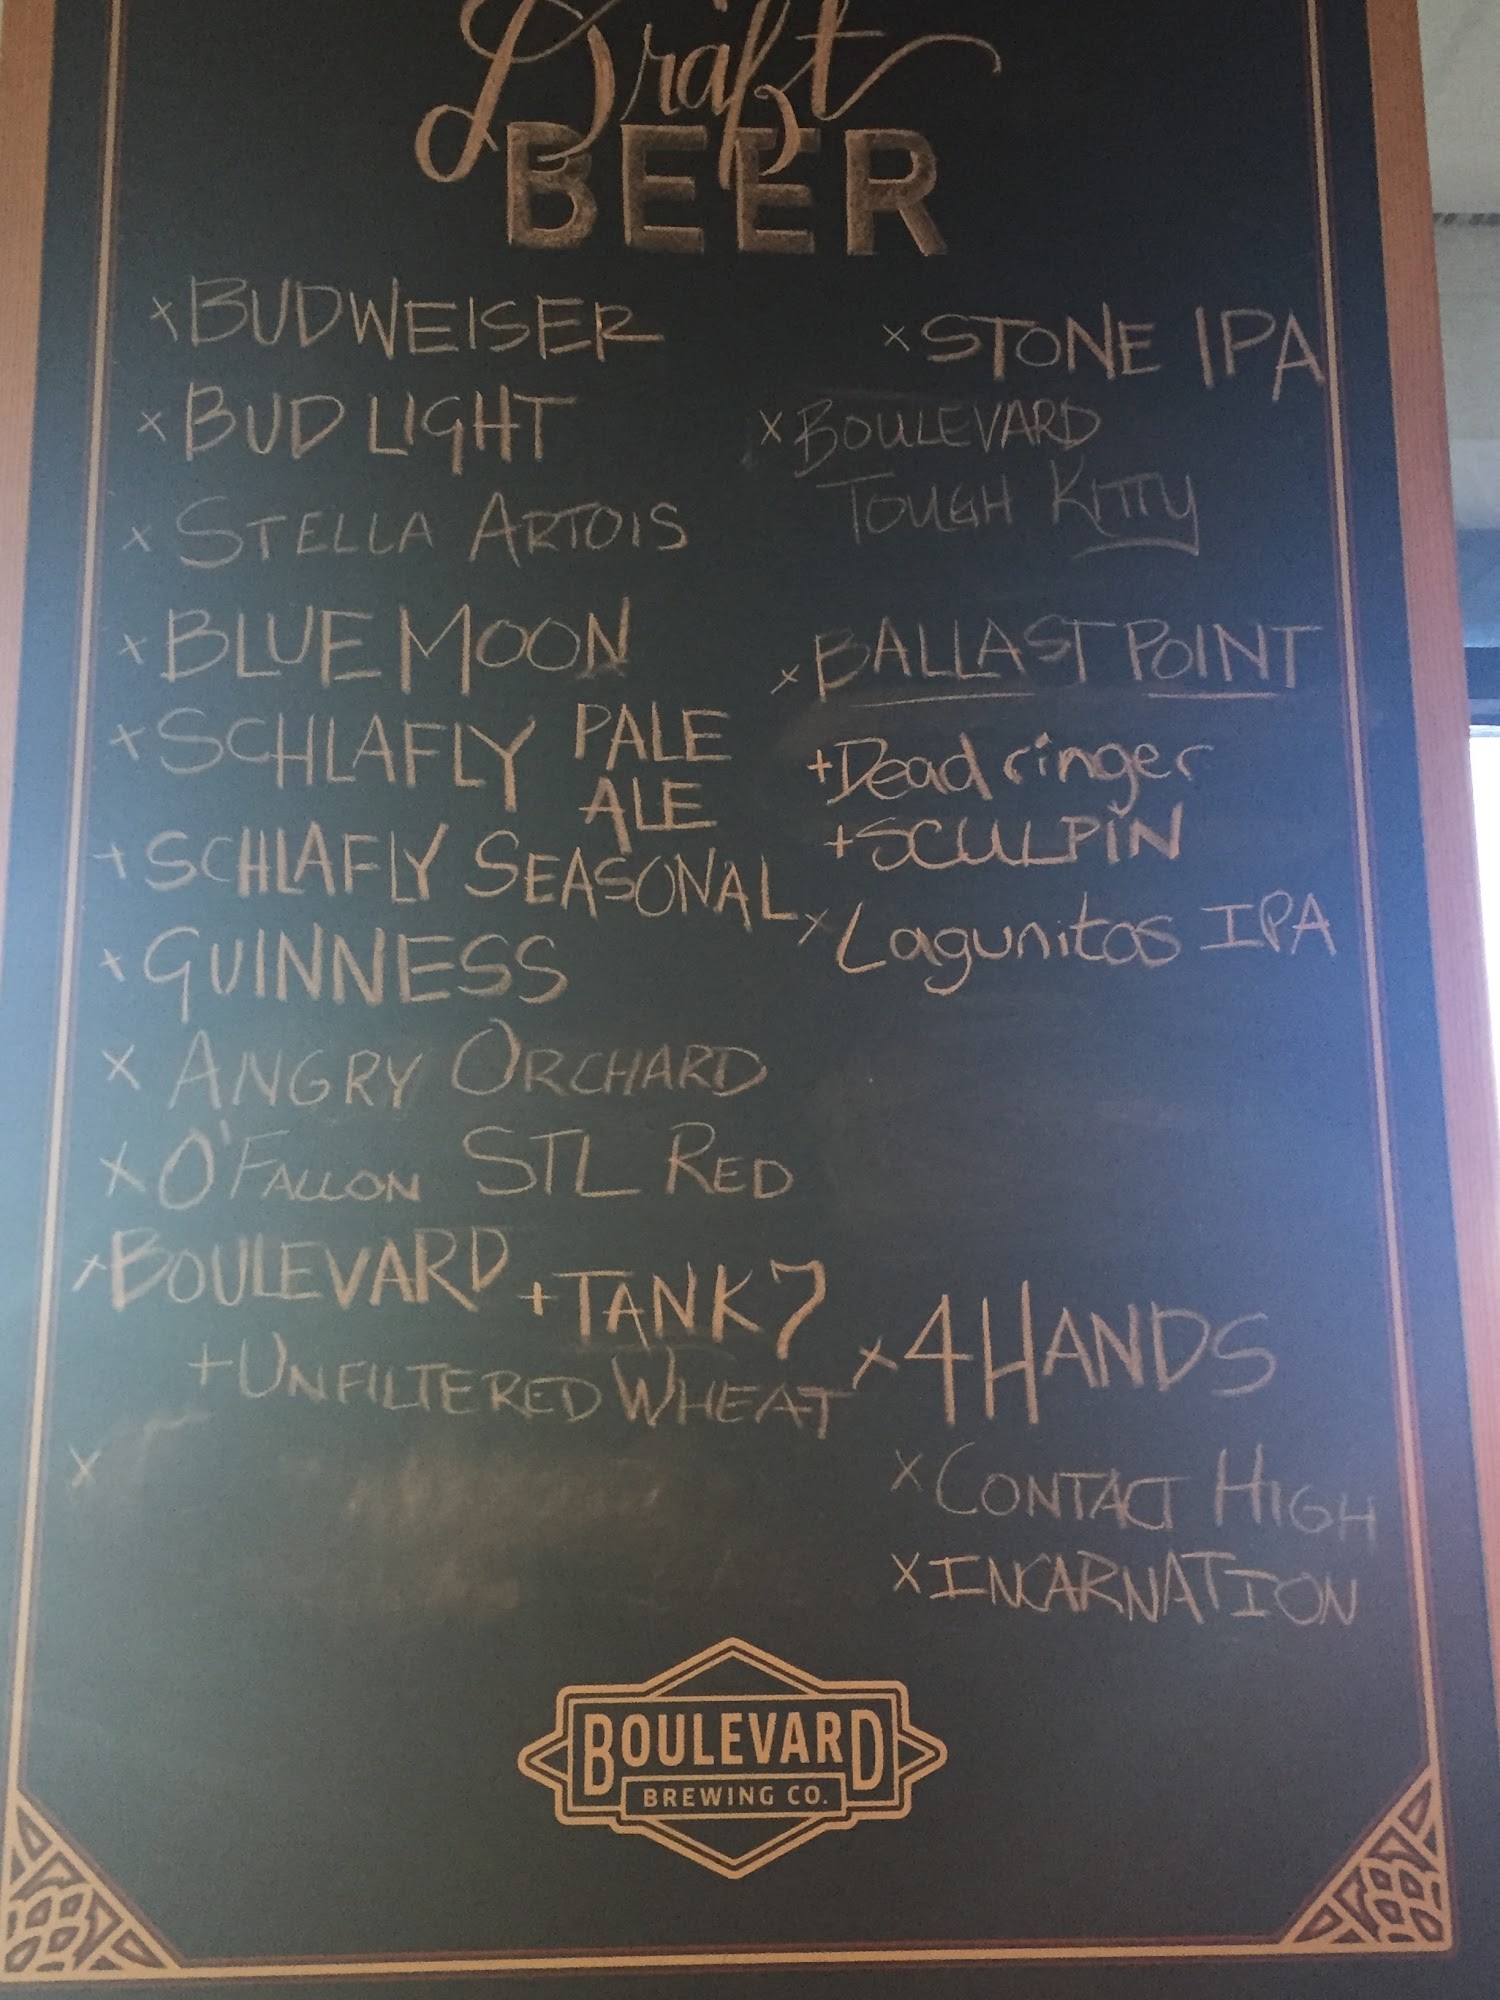 Draft
BEER
x BUDWEISER
x BUD LIGHT
x STELLA ARTOIS
x BLUE MOON
+ SCHLAFLY PALE
ALE
+ SCHLAFLY SEASONAL
+ GUINNESS
x ANGRY ORCHARD
x O'FALLON STL RED
x BOULEVARD + TANK 7
+ UNFILTERED WHEAT
x
x STONE IPA
x BOULEVARD
TOUGH KITTY
x BALLAST POINT
+ Dead ringer
+ SCULPIN
x Lagunitas IPA
x 4 HANDS
x CONTACT HIGH
x INCARNATION
BOULEVARD
BREWING CO.